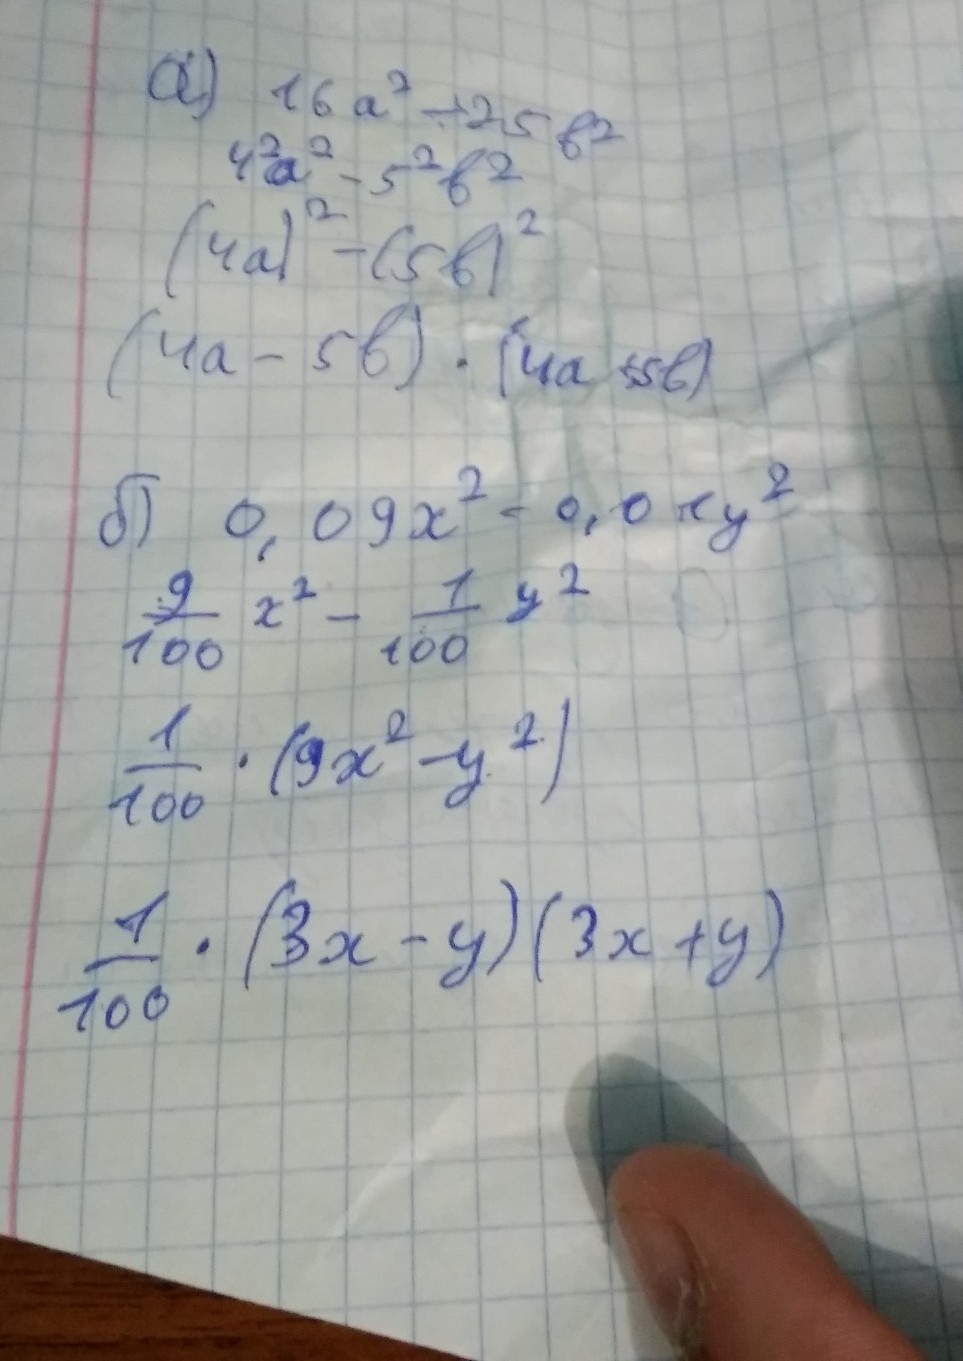 а) 16a² - 25b²
4²a² - 5²b²
(4a)² - (5b)²
(4a - 5b) · (4a + 5b)
б) 0,09x² - 0,01y²
9/100 x² - 1/100 y²
1/100 · (9x² - y²)
1/100 · (3x - y)(3x + y)